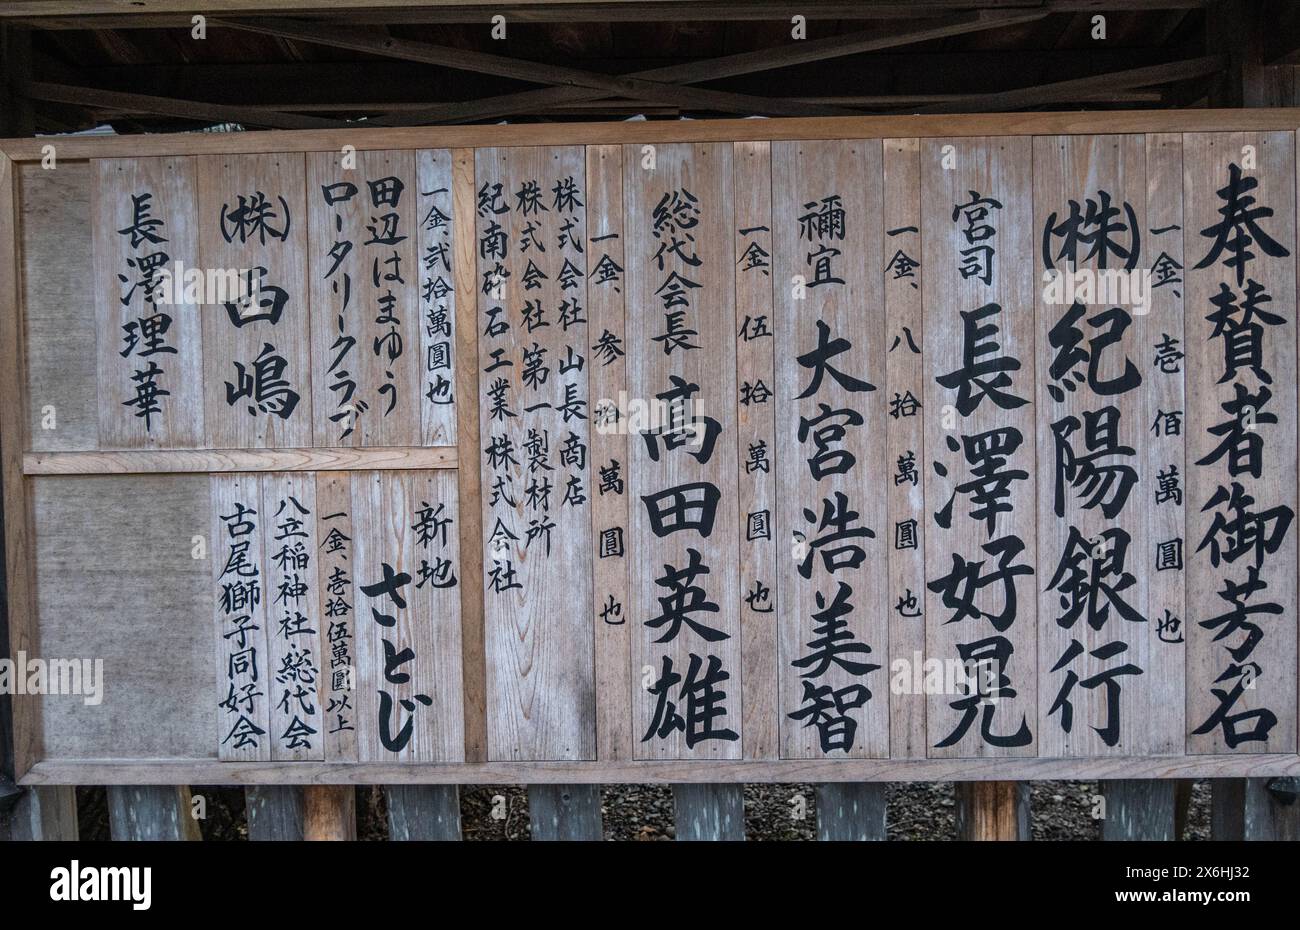 奉賛者御芳名
一金、壱佰萬圓也
(株)紀陽銀行
宮司 長澤好晃
一金、八拾萬圓也
禰宜 大宮浩美智
一金、伍拾萬圓也
総代会長 高田英雄
一金、参拾萬圓也
株式会社山長商店
株式会社第一製材所
紀南砕石工業株式会社
一金、弐拾萬圓也
田辺はまゆう
ロータリークラブ
(株)西嶋
長澤理華
新地
さとじ
一金、壱拾伍萬圓以上
八立稲神社・総代会
古尾獅子同好会
alamy
Image ID: 2X6HJ32
www.alamy.com